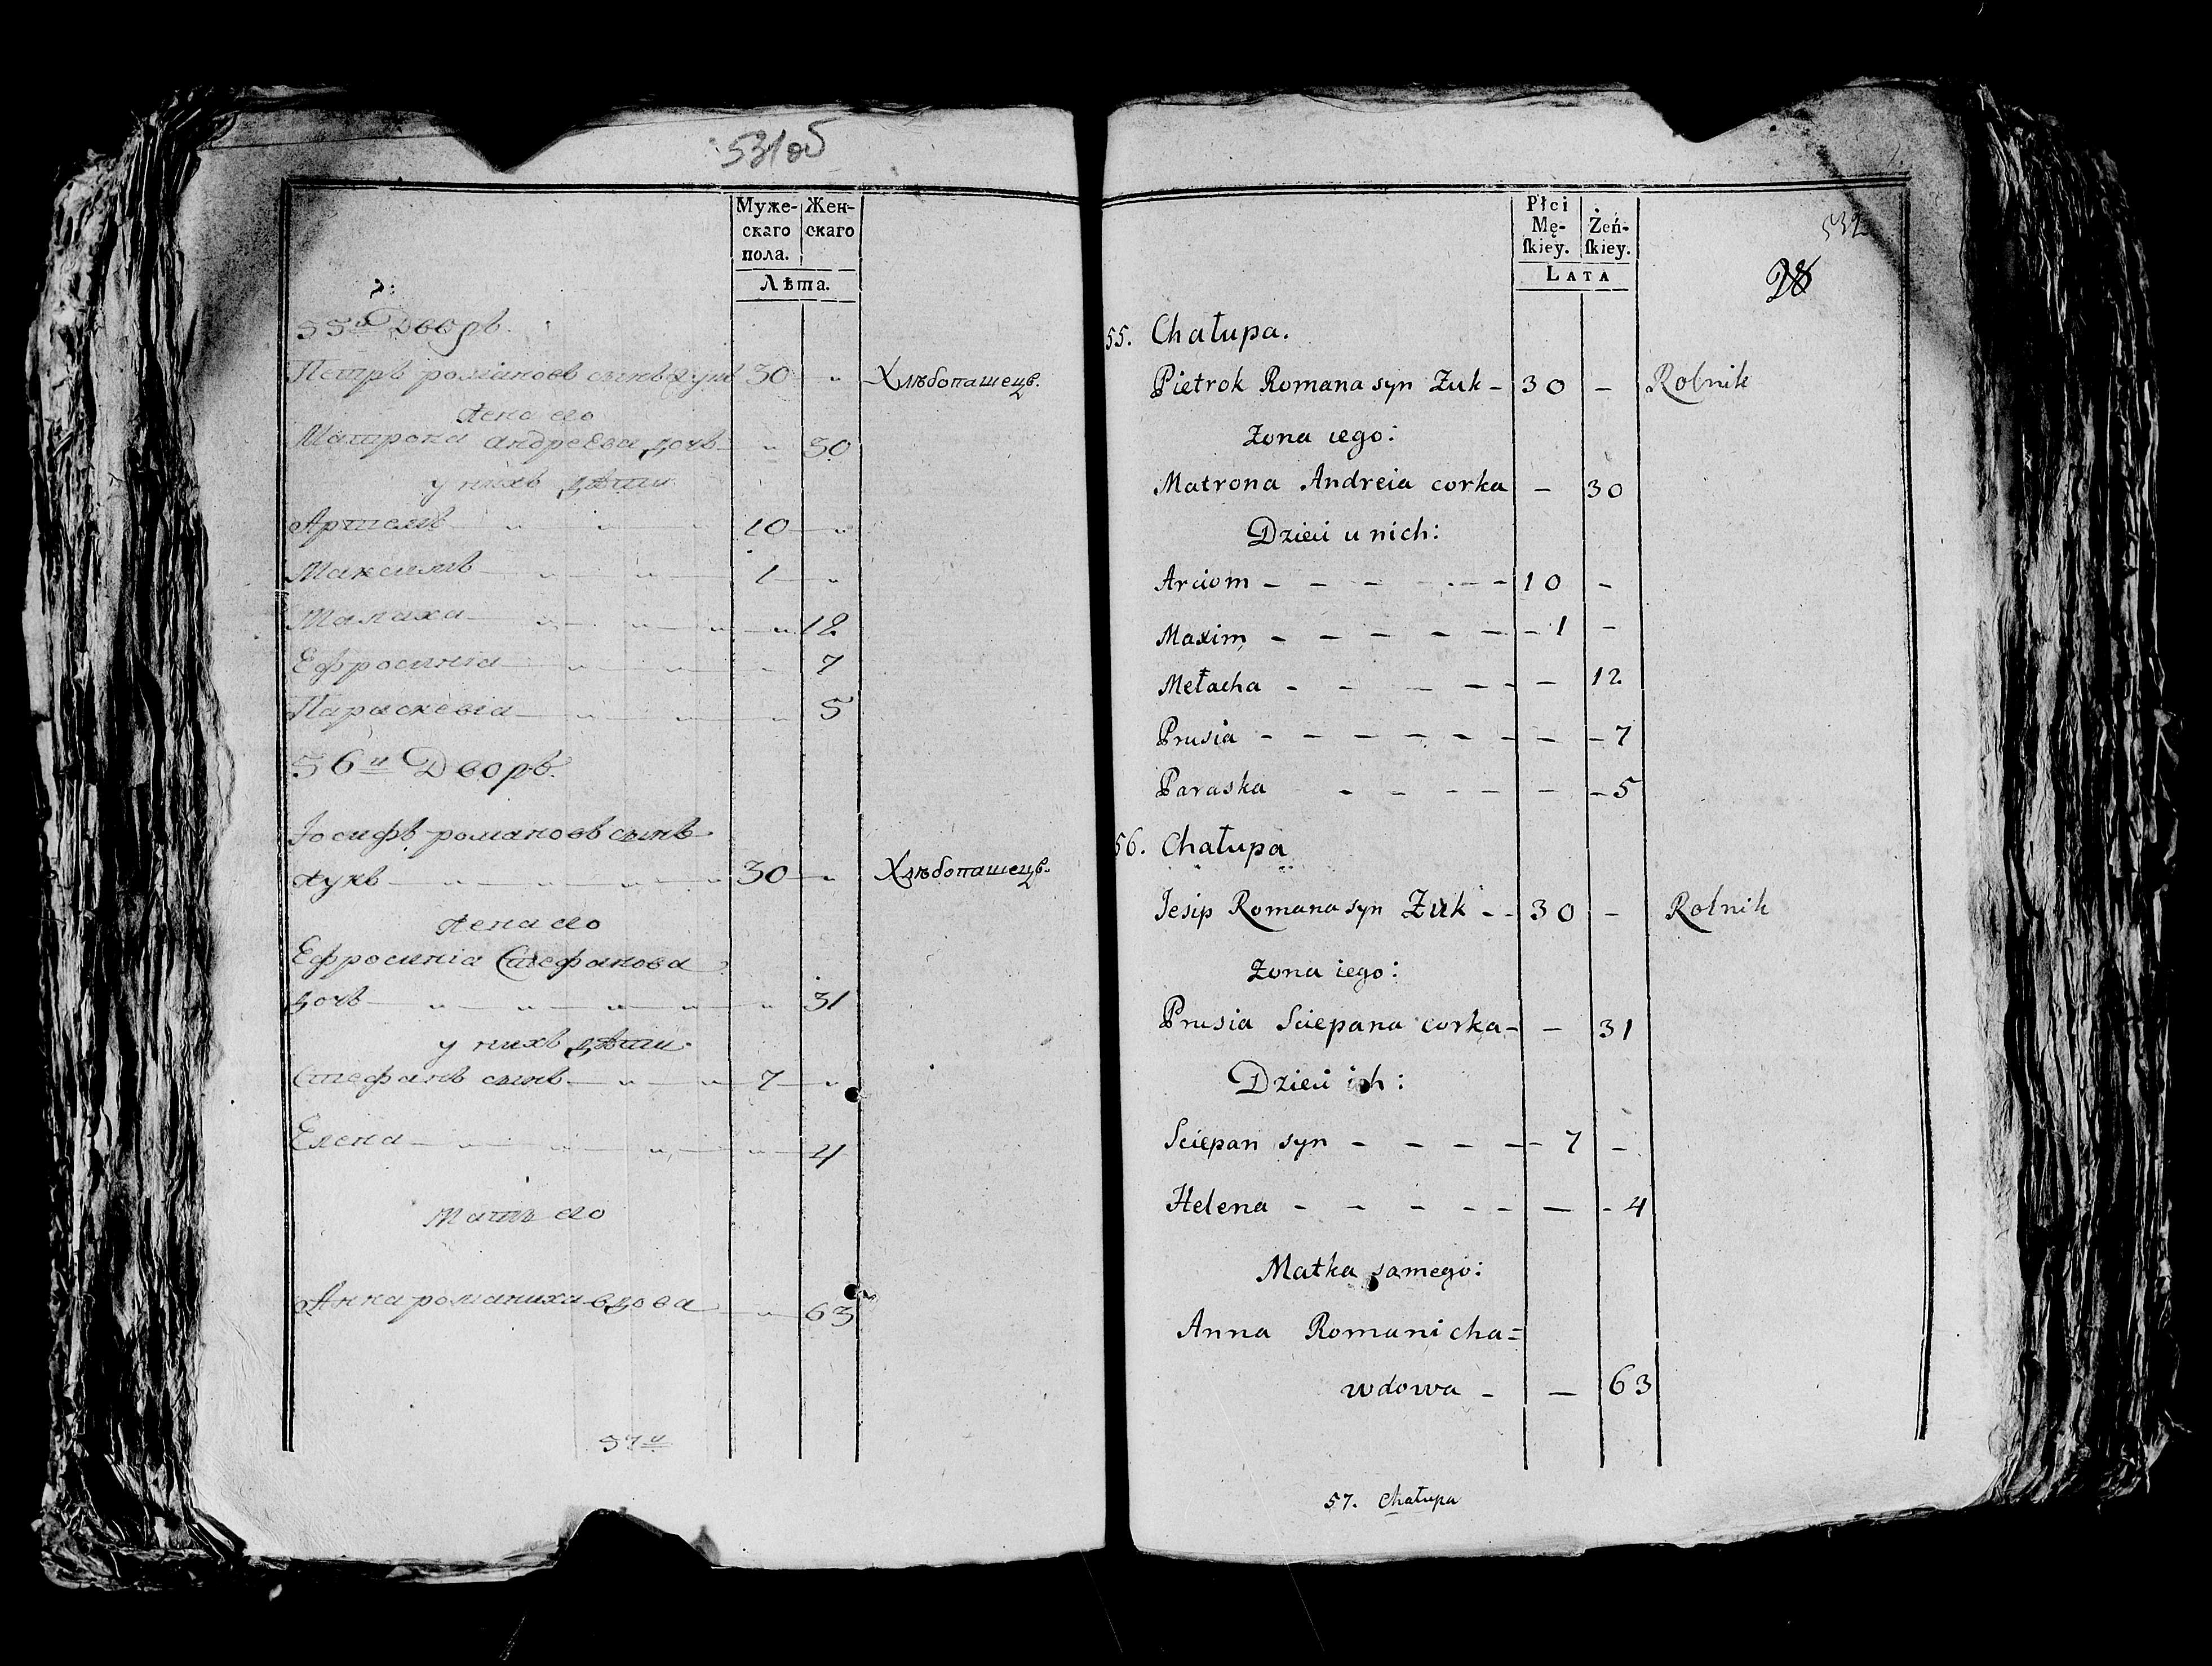 531об
Муже-
скаго
пола.
Жен-
скаго
Лѣта.
55й Дворъ.
Петръ романовъ сынъ жукъ 30 „ Хлѣбопашецъ.
Жена его
Матрона андреева дочь „ 30
у нихъ дѣти
Артемъ „ „ „ 10 „
Максимъ „ „ 1 „
Малаха „ „ „ „ 12
Ефросинія „ „ „ 7
Параскевіа „ „ „ 5
56й Дворъ.
Іосифъ романовъ сынъ
жукъ „ „ „ „ 30 „ Хлѣбопашецъ.
жена его
Ефросинія Стефанова
дочь „ „ „ „ „ 31
у нихъ дѣти
Стефанъ сынъ „ „ 7 „
Елена „ „ „ „ 4
Мать его
Анна романиха вдова „ 63
57й
Płci
Mę-
ſkiey.
Żeń-
ſkiey.
LATA
532
28
55. Chałupa.
Pietrok Romana syn Żuk - 30 - Rolnik
Żona iego:
Matrona Andreia corka - 30
Dzieci u nich:
Arciom - - - - - - 10 -
Maxim - - - - - - 1 -
Mełacha - - - - - - 12
Prusia - - - - - - - - 7
Paraska - - - - - - 5
56. Chałupa
Jesip Romana syn Żuk - - 30 - Rolnik
Żona iego:
Prusia Sciepana corka - - 31
Dzieci ich:
Sciepan syn - - - - - 7 -
Helena - - - - - - - 4
Matka samego:
Anna Romanicha =
wdowa - - 63
57. Chałupa